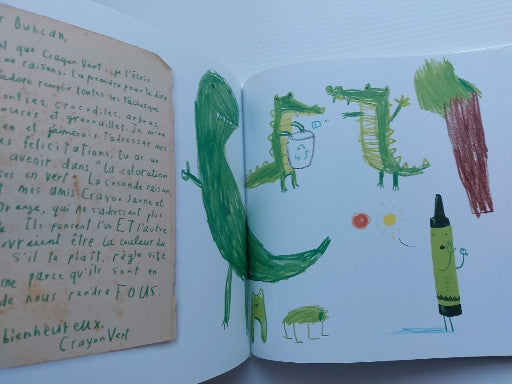 Duncan,
que Crayon Vert. Je t'écris
raisons. La première pour te dire
adore remplir toutes tes fabuleuses
crocodiles, arbres,
et grenouilles. Je m'en
en et aimerais t'adresser mes
félicitations, tu as un
avenir dans la coloration
en vert. La seconde raison,
mes amis Crayon Jaune et
Orange, qui ne s'adressent plus
Ils pensent l'un ET l'autre
devraient être la couleur du
S'il te plaît, règle vite
parce qu'ils sont en
de nous rendre FOUS.
bienheureux,
Crayon Vert